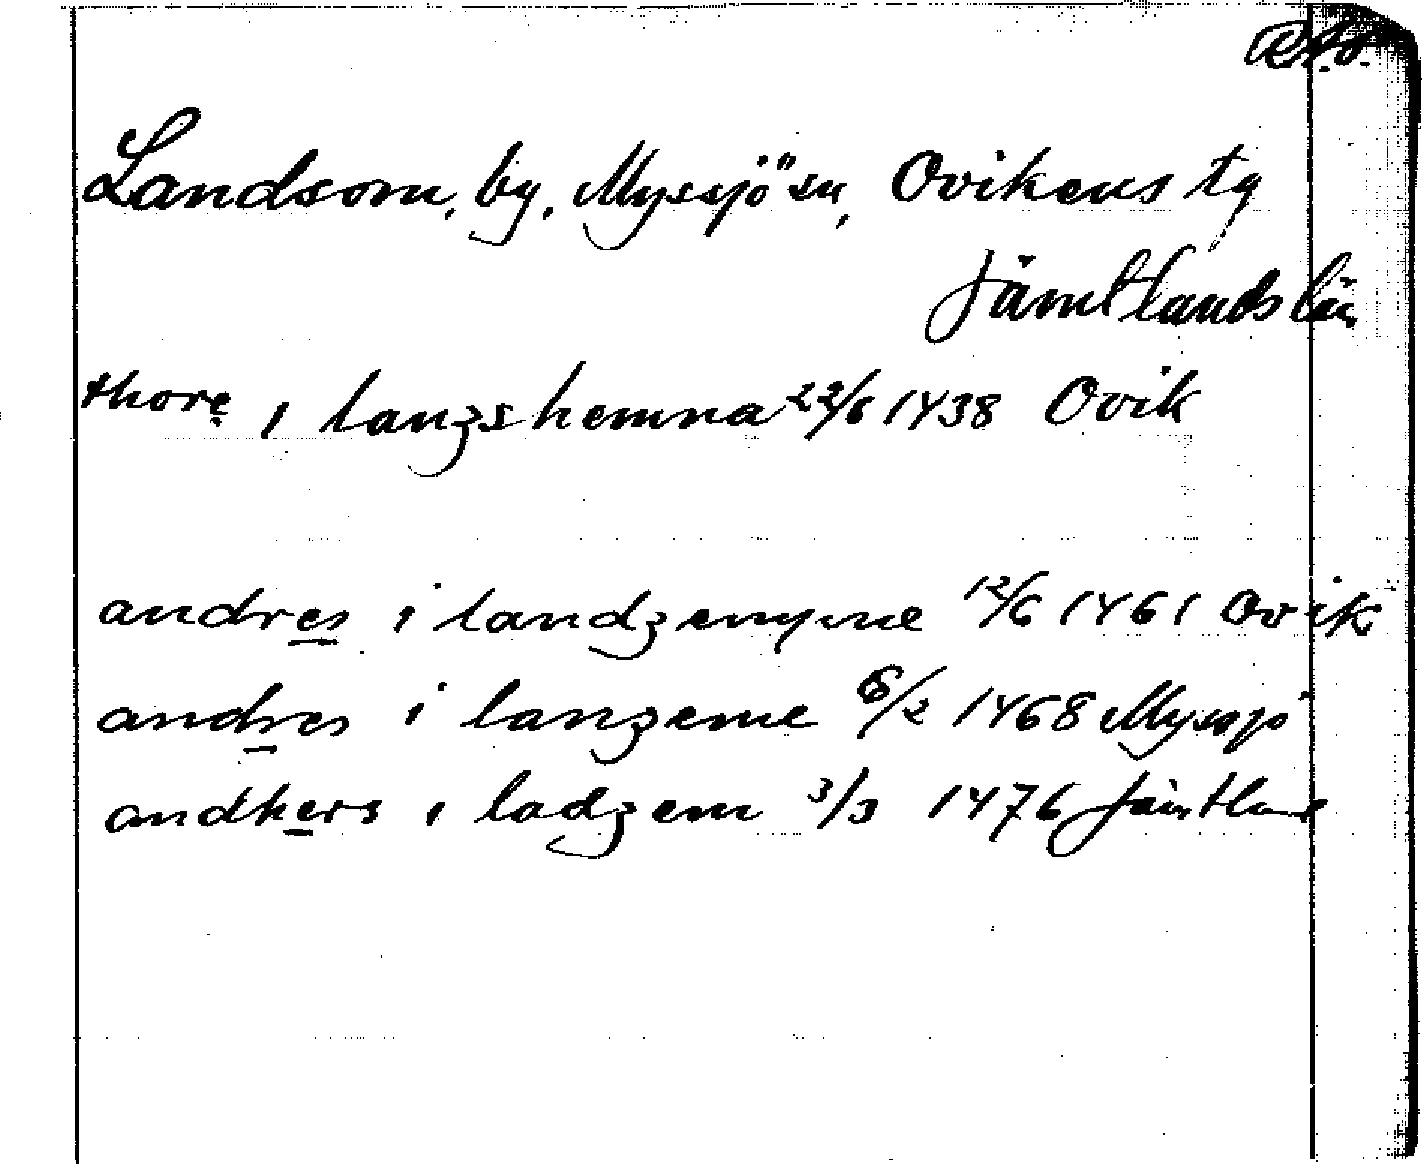 Landsom, by, Myssjö sn, Ovikens tg
Jämtlands län
thore i langshemna 22/6 1438 Ovik
andres i landzemnne 12/6 1461 Ovik
andres i lanzeme 6/2 1468 Myssjö
andhers i ladzem 3/3 1476 Jämtland